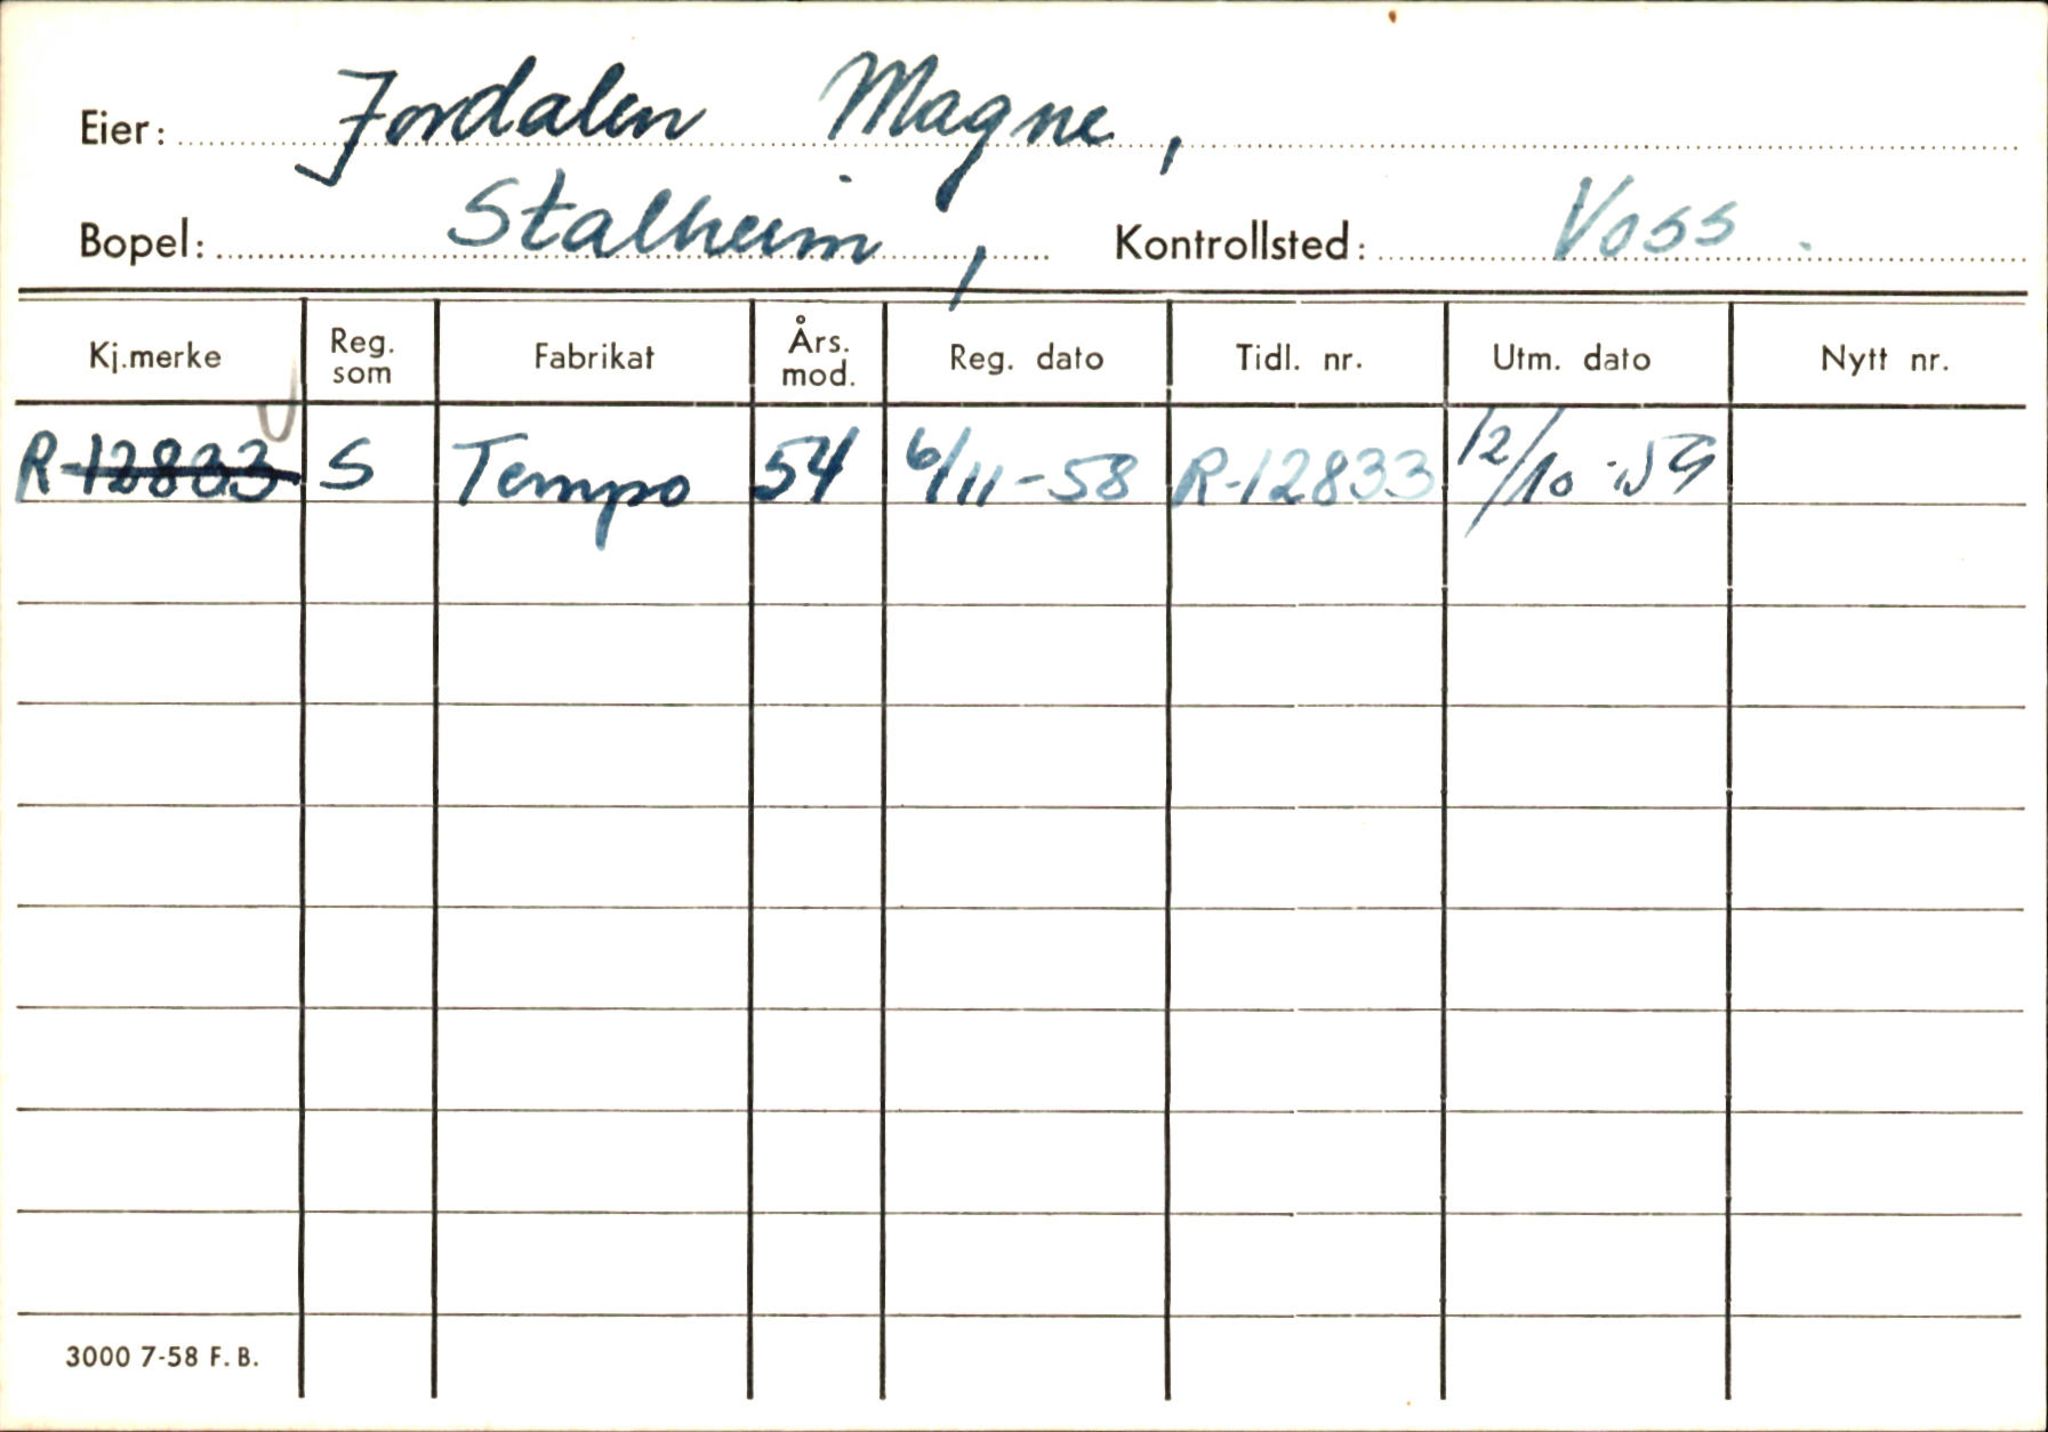 Eier: Jordalen Magne,
Bopel: Stalheim, Kontrollsted: Voss.
Kj.merke Reg. som Fabrikat Års. mod. Reg. dato Tidl. nr. Utm. dato Nytt nr.
R-12833 S Tempo 54 6/11-58 R-12833 12/10-59
3000 7-58 F. B.